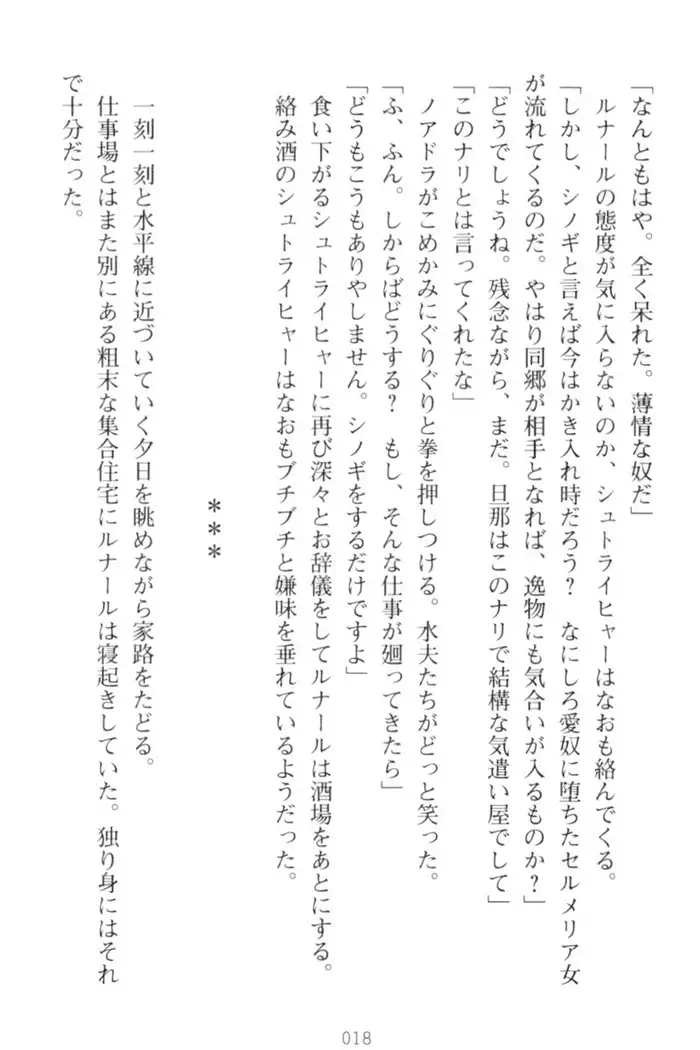 「なんともはや。全く呆れた。薄情な奴だ」
ルナールの態度が気に入らないのか、シュトライヒャーはなおも絡んでくる。
「しかし、シノギと言えば今はかき入れ時だろう？　なにしろ愛奴に堕ちたセルメリア女
が流れてくるのだ。やはり同郷が相手となれば、逸物にも気合いが入るものか？」
「どうでしょうね。残念ながら、まだ。旦那はこのナリで結構な気遣い屋でして」
「このナリとは言ってくれたな」
ノアドラがこめかみにぐりぐりと拳を押しつける。水夫たちがどっと笑った。
「ふ、ふん。しからばどうする？　もし、そんな仕事が廻ってきたら」
「どうもこうもありやしません。シノギをするだけですよ」
食い下がるシュトライヒャーに再び深々とお辞儀をしてルナールは酒場をあとにする。
絡み酒のシュトライヒャーはなおもブチブチと嫌味を垂れているようだった。
＊＊＊
一刻一刻と水平線に近づいていく夕日を眺めながら家路をたどる。
仕事場とはまた別にある粗末な集合住宅にルナールは寝起きしていた。独り身にはそれ
で十分だった。
018